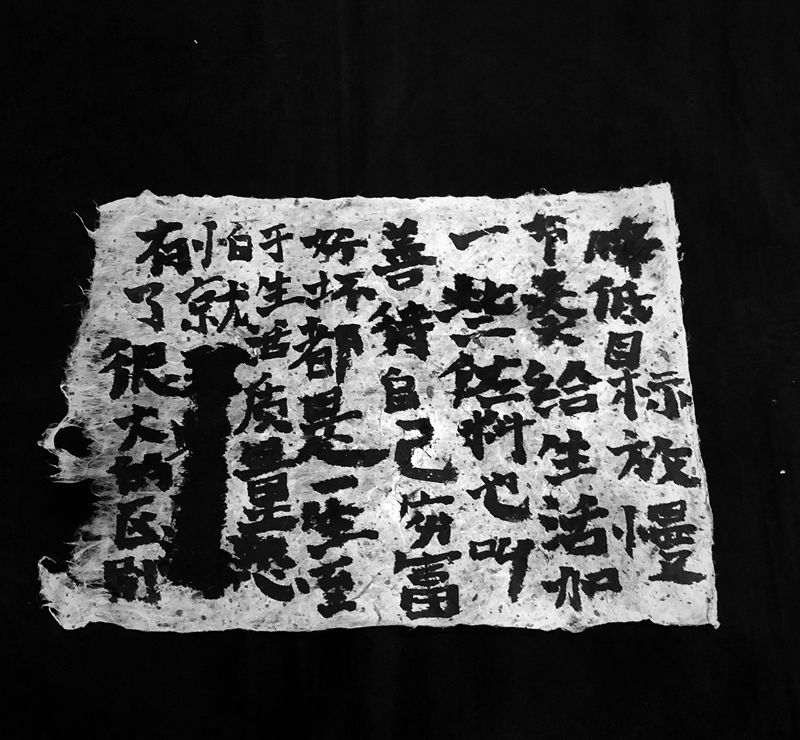 降低目标放慢
节奏给生活加
一些佐料也叫
善待自己穷富
好坏都是一生至
于生活质量恐
怕就
有了很大的区别